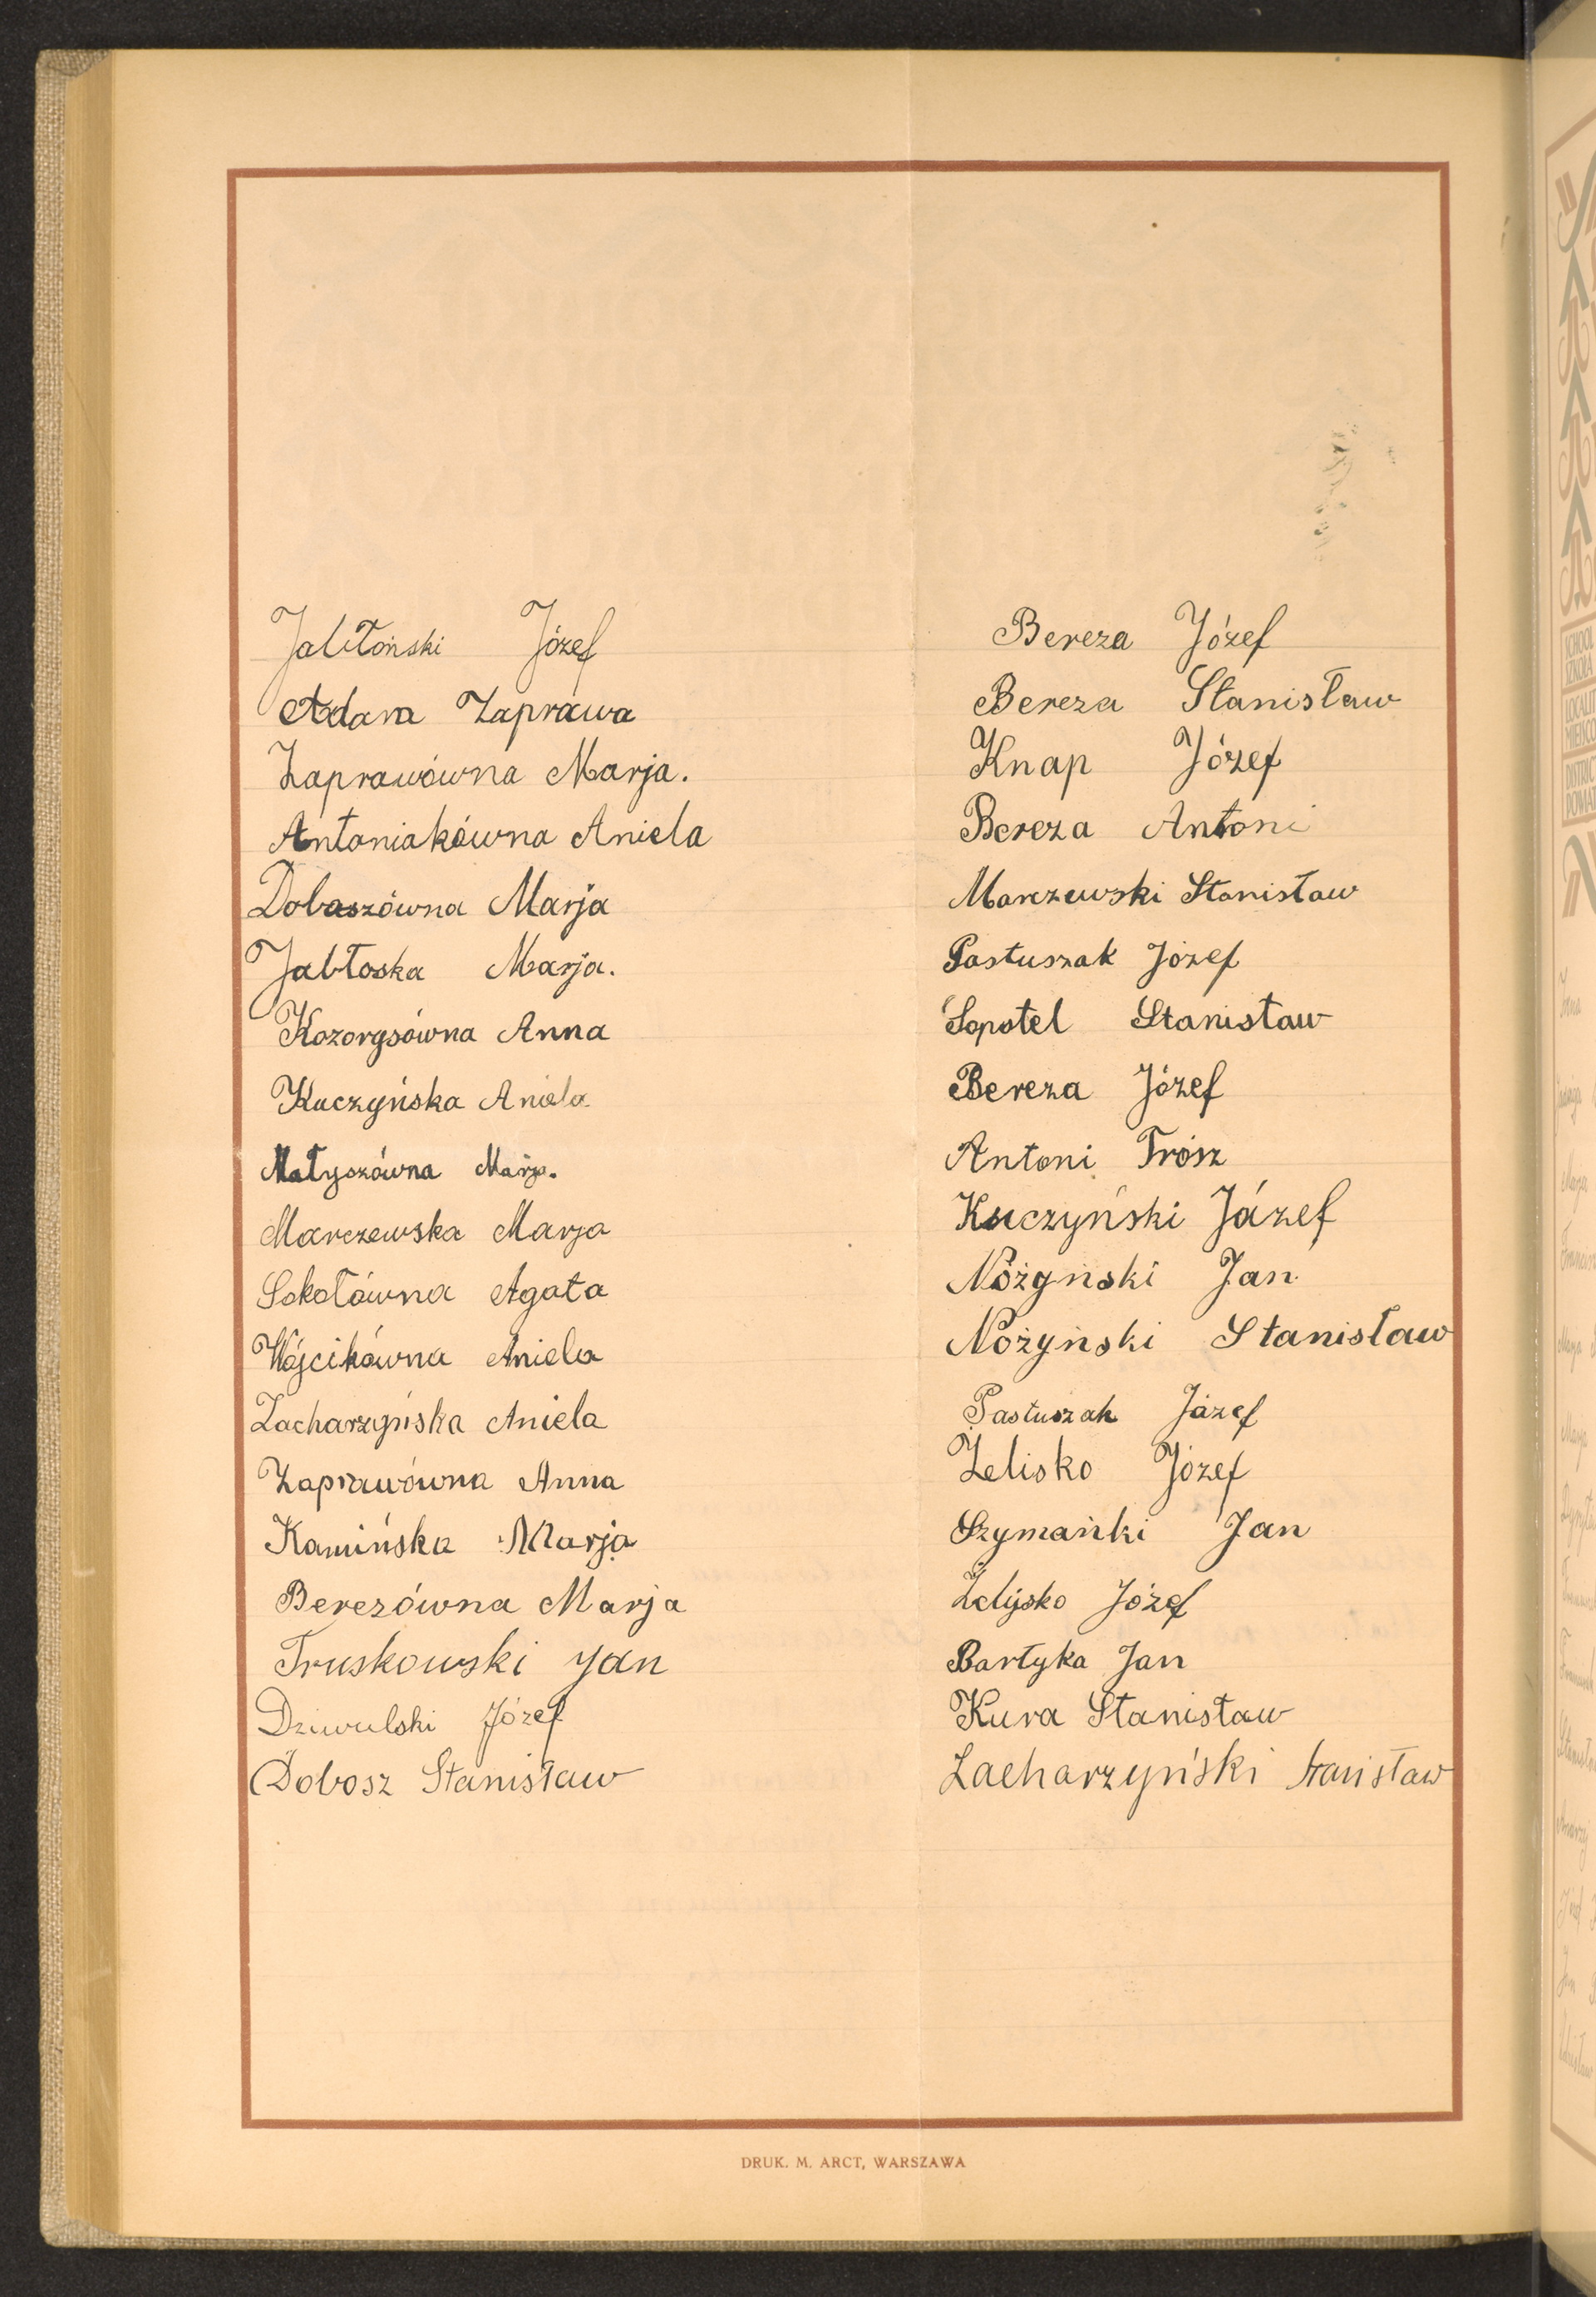 Jabłoński Józef
Adam Zaprawa
Zaprawówna Marja.
Antoniakówna Aniela
Dobaszówna Marja
Jabłoska Marja.
Kozorgsówna Anna
Kuczyńska Aniela
Małyszówna Marja.
Marczewska Marja
Sokołówna Agata
Wójcikówna Aniela
Zacharzyńska Aniela
Zaprawówna Anna
Kamińska Marja
Berezówna Marja
Truskowski Jan
Dziwulski Józef
Dobosz Stanisław
Bereza Józef
Bereza Stanisław
Knap Józef
Bereza Antoni
Marczewski Stanisław
Pastuszak Józef
Sopotel Stanisław
Bereza Józef
Antoni Trósz
Kuczyński Józef
Nóżyński Jan
Nożyński Stanisław
Pastuszak Józef
Żelisko Józef
Szymańki Jan
Żelijsko Józef
Bartyka Jan
Kura Stanisław
Zacharzyński Stanisław
DRUK. M. ARCT, WARSZAWA